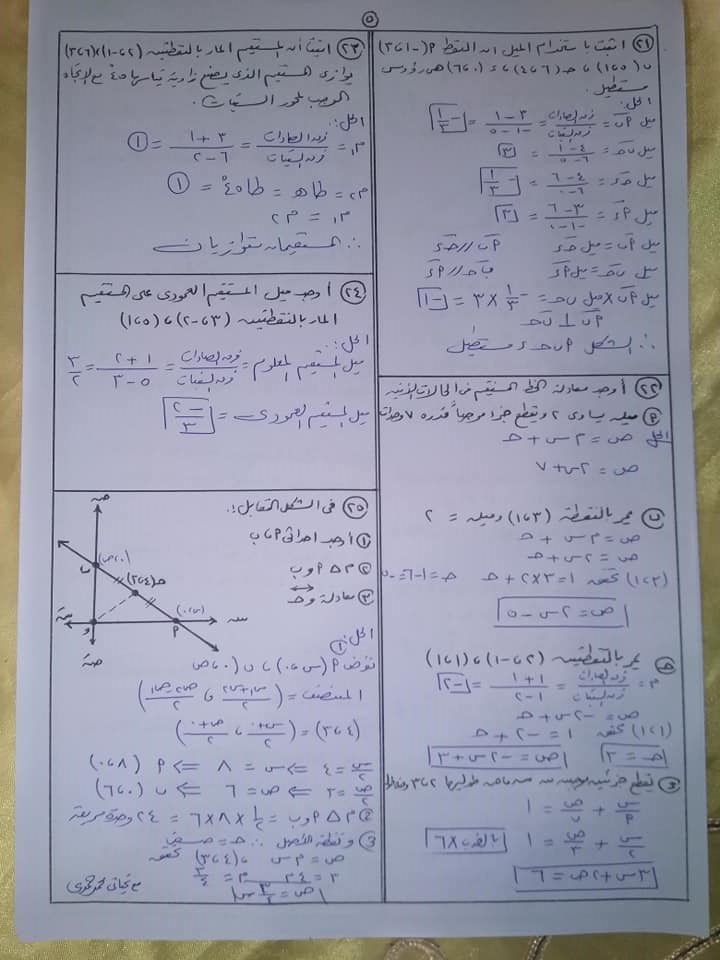 ٥
(٢١) اثبت باستخدام الميل ان النقط P(-١،٣)
ب(٥،١) ، حـ(٦،٤) ، ء(٠،٦) هى رؤوس
مستطيل
الحل:
ميل Pب = فرق الصادات/فرق السينات = (٣-١)/(-١-٥) = -١/٣
ميل ب حـ = (٤-١)/(٦-٥) = ٣
ميل حـ ء = (٦-٤)/(٠-٦) = -١/٣
ميل Pء = (٦-٣)/(٠-١-) = ٣
ميل Pب = ميل حـ ء Pب // حـ ء
ميل ب حـ = ميل Pء ب حـ // Pء
ميل Pب × ميل ب حـ = -١/٣ × ٣ = -١
Pب ⊥ ب حـ
∴ الشكل P ب حـ ء مستطيل
(٢٢) أوجد معادلة الخط المستقيم فى الحالات الآتية
(P) ميله يساوى ٢ ويقطع جزءاً موجباً قدره ٧ وحدات
الحل ص = م س + حـ
ص = ٢س + ٧
(ب) يمر بالنقطة (٣،١) وميله = ٢
ص = م س + حـ
ص = ٢س + حـ
(٣،١) تحقق ١ = ٣×٢ + حـ حـ = ١-٦ = -٥
ص = ٢س - ٥
(حـ) يمر بالنقطتين (٢،-١) ، (١،١)
م = فرق الصادات/فرق السينات = (١+١)/(١-٢) = -٢
ص = -٢س + حـ
(١،١) تحقق ١ = -٢ + حـ
حـ = ٣ ص = -٢س + ٣
(ء) يقطع جزئين موجبين من محورى طوليهما ٢،٣
س/P + ص/ب = ١
س/٢ + ص/٣ = ١ بالضرب × ٦
٣س + ٢ص = ٦
(٢٣) اثبت أن المستقيم المار بالنقطتين (٢،-١)،(٦،٣)
يوازى المستقيم الذى يصنع زاوية قياسها ٤٥° مع الاتجاه
الموجب لمحور السينات.
الحل:
م١ = فرق الصادات/فرق السينات = (٣+١)/(٦-٢) = ١
م٢ = طا هـ = طا ٤٥° = ١
م١ = م٢
∴ المستقيمان متوازيان
(٢٤) أوجد ميل المستقيم العمودى على المستقيم
المار بالنقطتين (٣،-٢) ، (٥،١)
الحل:
ميل المستقيم المعلوم = فرق الصادات/فرق السينات = (١+٢)/(٥-٣) = ٣/٢
ميل المستقيم العمودى = -٢/٣
(٢٥) فى الشكل المقابل:
(١) أوجد احداثى P، ب
(٢) م △ P و ب
(٣) معادلة و حـ
صَ
ب (٠،ص)
حـ(٤،٣)
(س،٠)
سَ و P س
صَ
الحل:
(١)
نفرض P(س،٠) ، ب(٠،ص)
المنتصف = ((س١+س٢)/٢ ، (ص١+ص٢)/٢)
(٤،٣) = ((س+٠)/٢ ، (ص+٠)/٢)
س/٢ = ٤ ⇐ س = ٨ ⇐ P (٨،٠)
ص/٢ = ٣ ⇐ ص = ٦ ⇐ ب (٠،٦)
(٢) م △ P و ب = ١/٢ × ٨ × ٦ = ٢٤ وحدة مربعة
(٣) و نقطة الأصل ∴ حـ = صفر
ص = م س ، (٤،٣) تحقق
٣ = ٤م م = ٣/٤